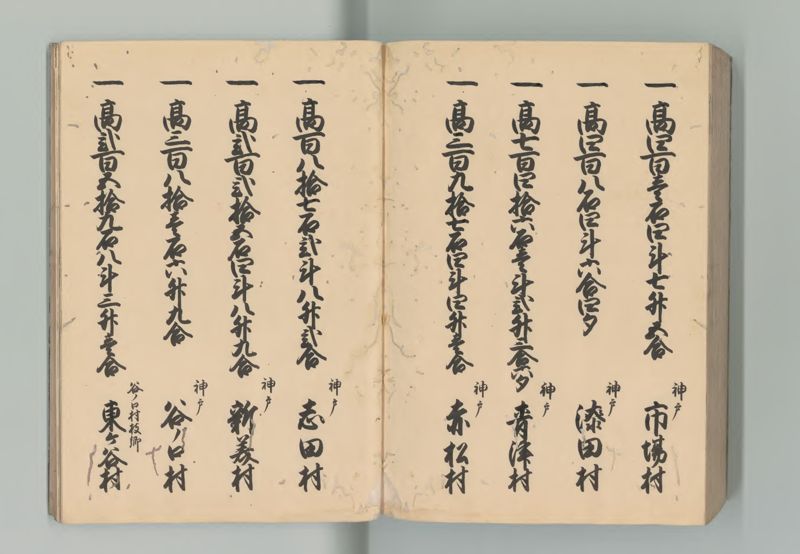 一 高四百壱石四斗七升五合
神戸 市場村
一 高四百八石四斗六合四夕
神戸 漆田村
一 高七百四拾六石壱斗弐升三合八夕
神戸 青津村
一 高三百九拾七石四斗四升壱合
神戸 赤松村
一 高百八拾七石弐斗八升弐合
神戸 志田村
一 高弐百弐拾五石四斗八升九合
神戸 新美村
一 高三百八拾壱石六升九合
神戸 谷ノ口村
一 高弐百五拾九石八斗三升壱合
谷ノ口村枝郷 東ヶ谷村